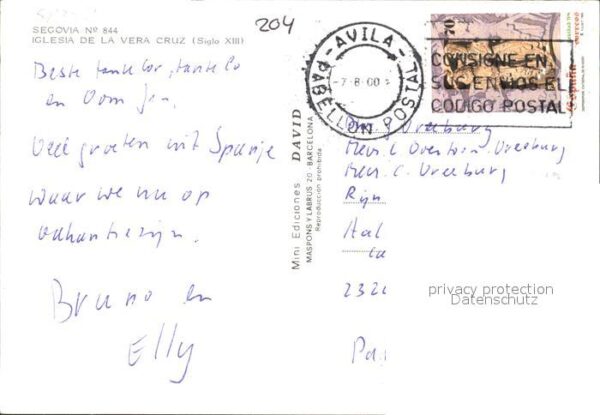 204
SEGOVIA Nº 844
IGLESIA DE LA VERA CRUZ (Siglo XIII)
Beste tante Cor, tante Co
en Oom Jan,
Veel groeten uit Spanje
waar we nu op
vakantie zijn.
Bruno en
Elly
Mini Ediciones DAVID
MASPONS Y LABRUS 20 - BARCELONA
Reproducción prohibida
- AVILA -
-7.8.00
PABELLON POSTAL
CONSIGNE EN
SUS ENVIOS EL
CODIGO POSTAL
70
españa
correos
Vreeburg
Mevr. C. Vreeburg
Rijn
232
privacy protection
Datenschutz